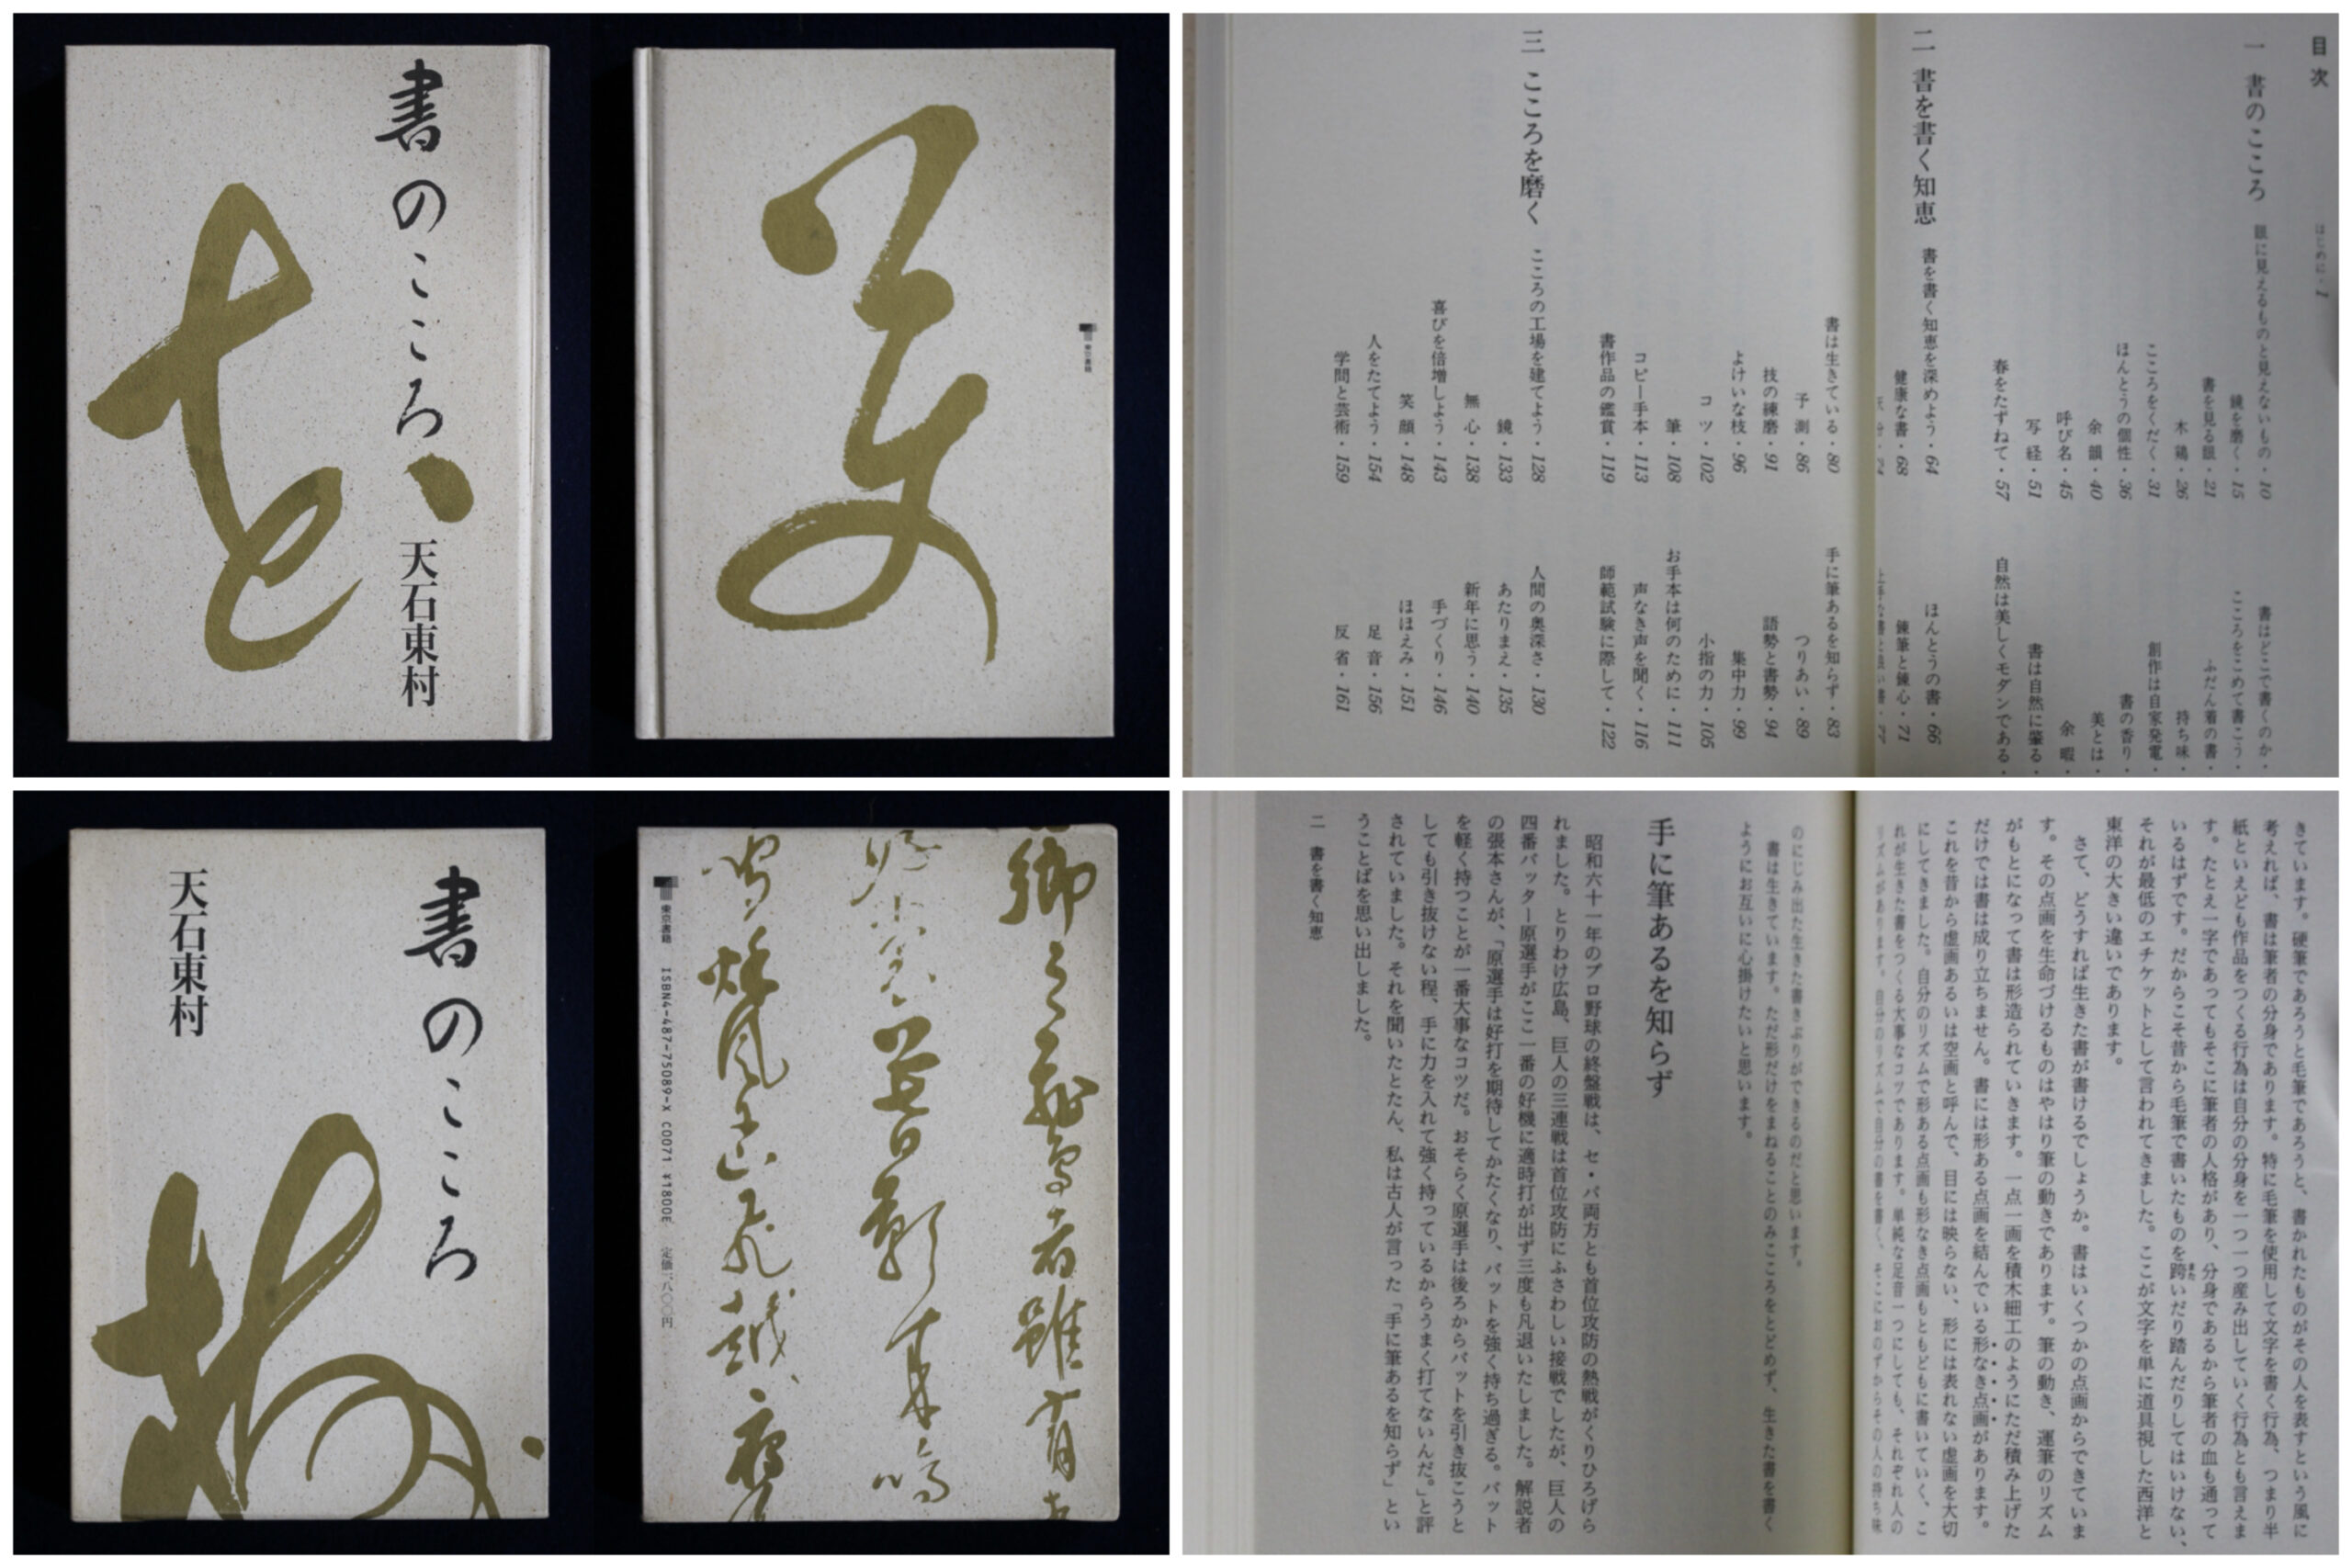 書のこころ
天石東村
東京書籍
目次
はじめに・1
一 書のこころ
眼に見えるものと見えないもの・10
書はどこで書くのか・
鏡を磨く・15
こころをこめて書こう・
書を見る眼・21
ふだん着の書・
木鶏・26
持ち味・
こころをくだく・31
創作は自家発電・
ほんとうの個性・36
書の香り・
余韻・40
美とは・
呼び名・45
余暇・
写経・51
書は自然に肇る・
春をたずねて・57
自然は美しくモダンである・
二 書を書く知恵
書を書く知恵を深めよう・64
ほんとうの書・66
健康な書・68
錬筆と錬心・71
書は生きている・80
手に筆あるを知らず・83
予測・86
つりあい・89
技の練磨・91
語勢と書勢・94
よけいな枝・96
集中力・99
コツ・102
小指の力・105
筆・108
お手本は何のために・111
コピー手本・113
声なき声を聞く・116
書作品の鑑賞・119
師範試験に際して・122
三 こころを磨く
こころの工場を建てよう・128
人間の奥深さ・130
鏡・133
あたりまえ・135
無心・138
新年に思う・140
喜びを倍増しよう・143
手づくり・146
笑顔・148
ほほえみ・151
人をたてよう・154
足音・156
学問と芸術・159
反省・161
書のこころ
天石東村
東京書籍 ISBN4-487-75089-X C0071 ¥1800E 定価一八〇〇円
きています。硬筆であろうと毛筆であろうと、書かれたものがその人を表すという風に
考えれば、書は筆者の分身であります。特に毛筆を使用して文字を書く行為、つまり半
紙といえども作品をつくる行為は自分の分身を一つ一つ産み出していく行為とも言えま
す。たとえ一字であってもそこに筆者の人格があり、分身であるから筆者の血も通って
いるはずです。だからこそ昔から毛筆で書いたものを跨いだり踏んだりしてはいけない、
それが最低のエチケットとして言われてきました。ここが文字を単に道具視した西洋と
東洋の大きい違いであります。
さて、どうすれば生きた書が書けるでしょうか。書はいくつかの点画からできていま
す。その点画を生命づけるものはやはり筆の動きであります。筆の動き、運筆のリズム
がもとになって書は形造られていきます。一点一画を積木細工のようにただ積み上げた
だけでは書は成り立ちません。書には形ある点画を結んでいる形なき点画があります。
これを昔から虚画あるいは空画と呼んで、目には映らない、形には表れない虚画を大切
にしてきました。自分のリズムで形ある点画も形なき点画もともどもに書いていく、こ
れが生きた書をつくる大事なコツであります。単純な足音一つにしても、それぞれ人の
リズムがあります。自分のリズムで自分の書を書く、そこにおのずからその人の持ち味
のにじみ出た生きた書きぶりができるのだと思います。
書は生きています。ただ形だけをまねることのみこころをとどめず、生きた書を書く
ようにお互いに心掛けたいと思います。
手に筆あるを知らず
昭和六十一年のプロ野球の終盤戦は、セ・パ両方とも首位攻防の熱戦がくりひろげら
れました。とりわけ広島、巨人の三連戦は首位攻防にふさわしい接戦でしたが、巨人の
四番バッター原選手がここ一番の好機に適時打が出ず三度も凡退いたしました。解説者
の張本さんが、「原選手は好打を期待してかたくなり、バットを強く持ち過ぎる。バット
を軽く持つことが一番大事なコツだ。おそらく原選手は後ろからバットを引き抜こうと
しても引き抜けない程、手に力を入れて強く持っているからうまく打てないんだ。」と評
されていました。それを聞いたとたん、私は古人が言った「手に筆あるを知らず」とい
うことばを思い出しました。
二 書を書く知恵